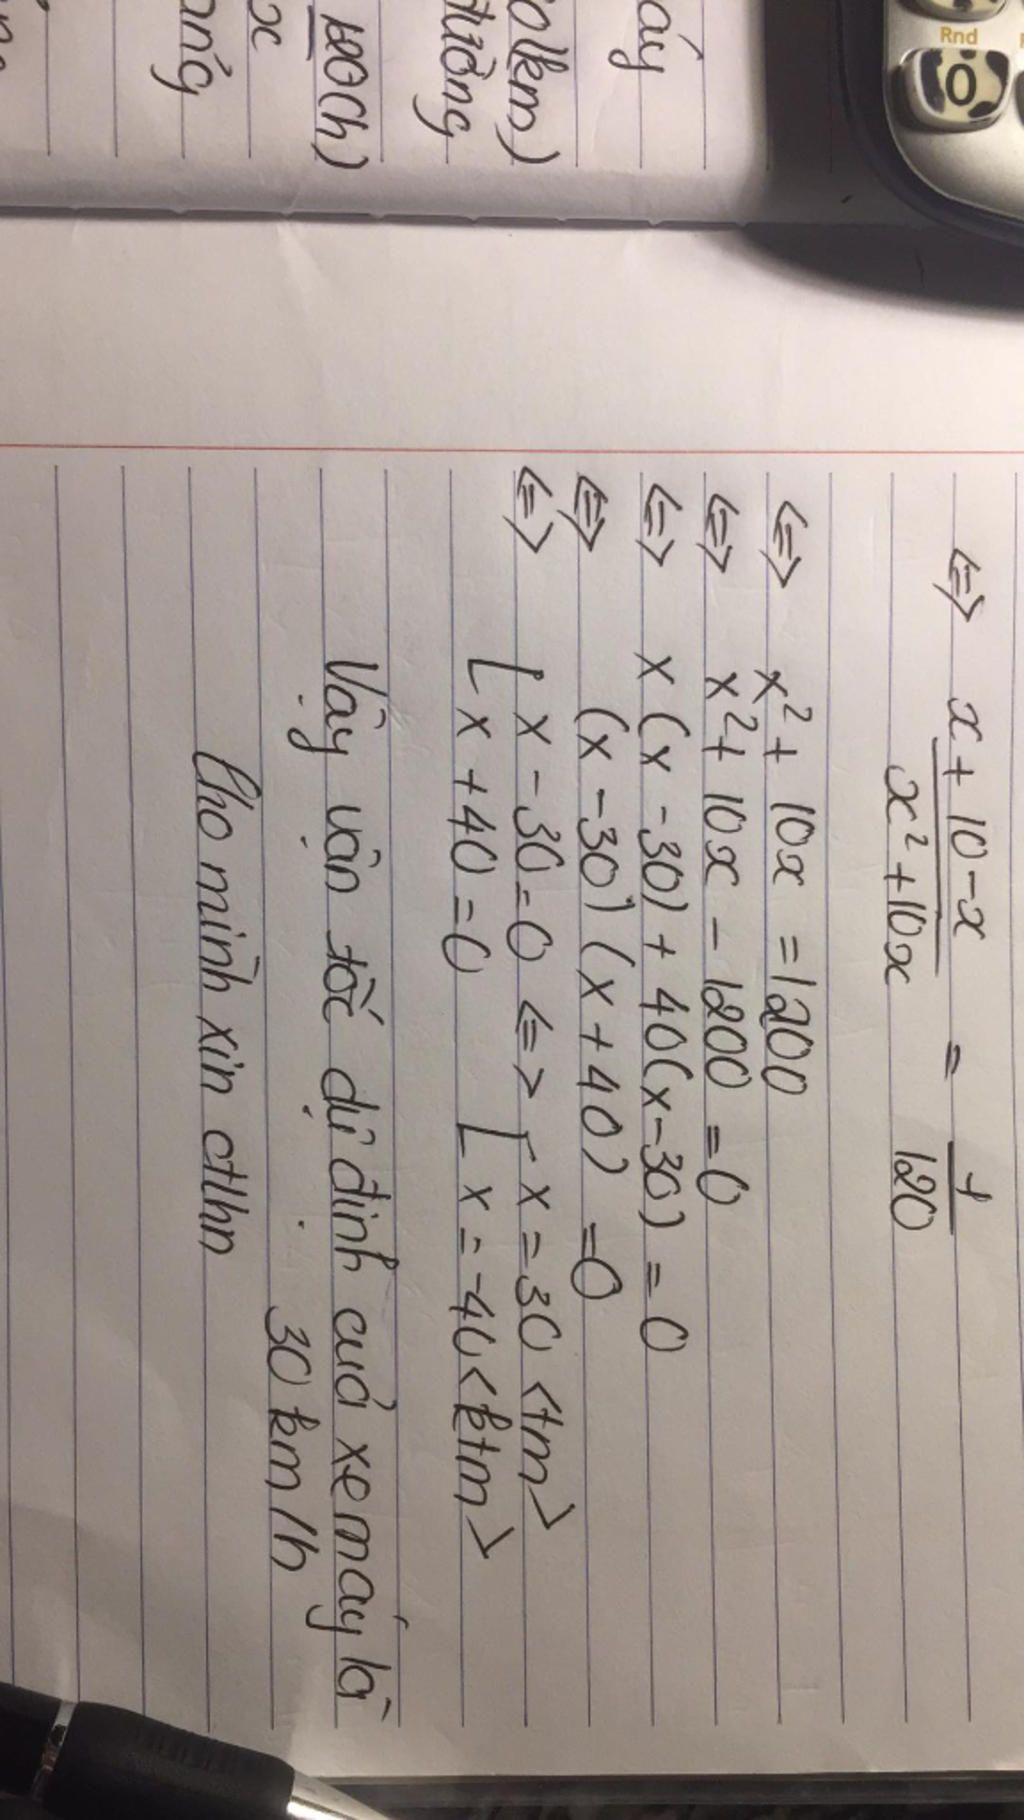 Rnd
0
áy
olkm)
đường
x
⇔ x + 10 - x / x² + 10x = 1 / 120
⇔ x² + 10x = 1200
⇔ x² + 10x - 1200 = 0
⇔ x (x - 30) + 40(x - 30) = 0
⇔ (x - 30) (x + 40) = 0
⇔ [ x - 30 = 0 ⇔ [ x = 30 <tm>
[ x + 40 = 0 [ x = -40 <ktm>
Vậy vận tốc dự định cuả xe máy là
30 km/h
Cho mình xin ctlhn